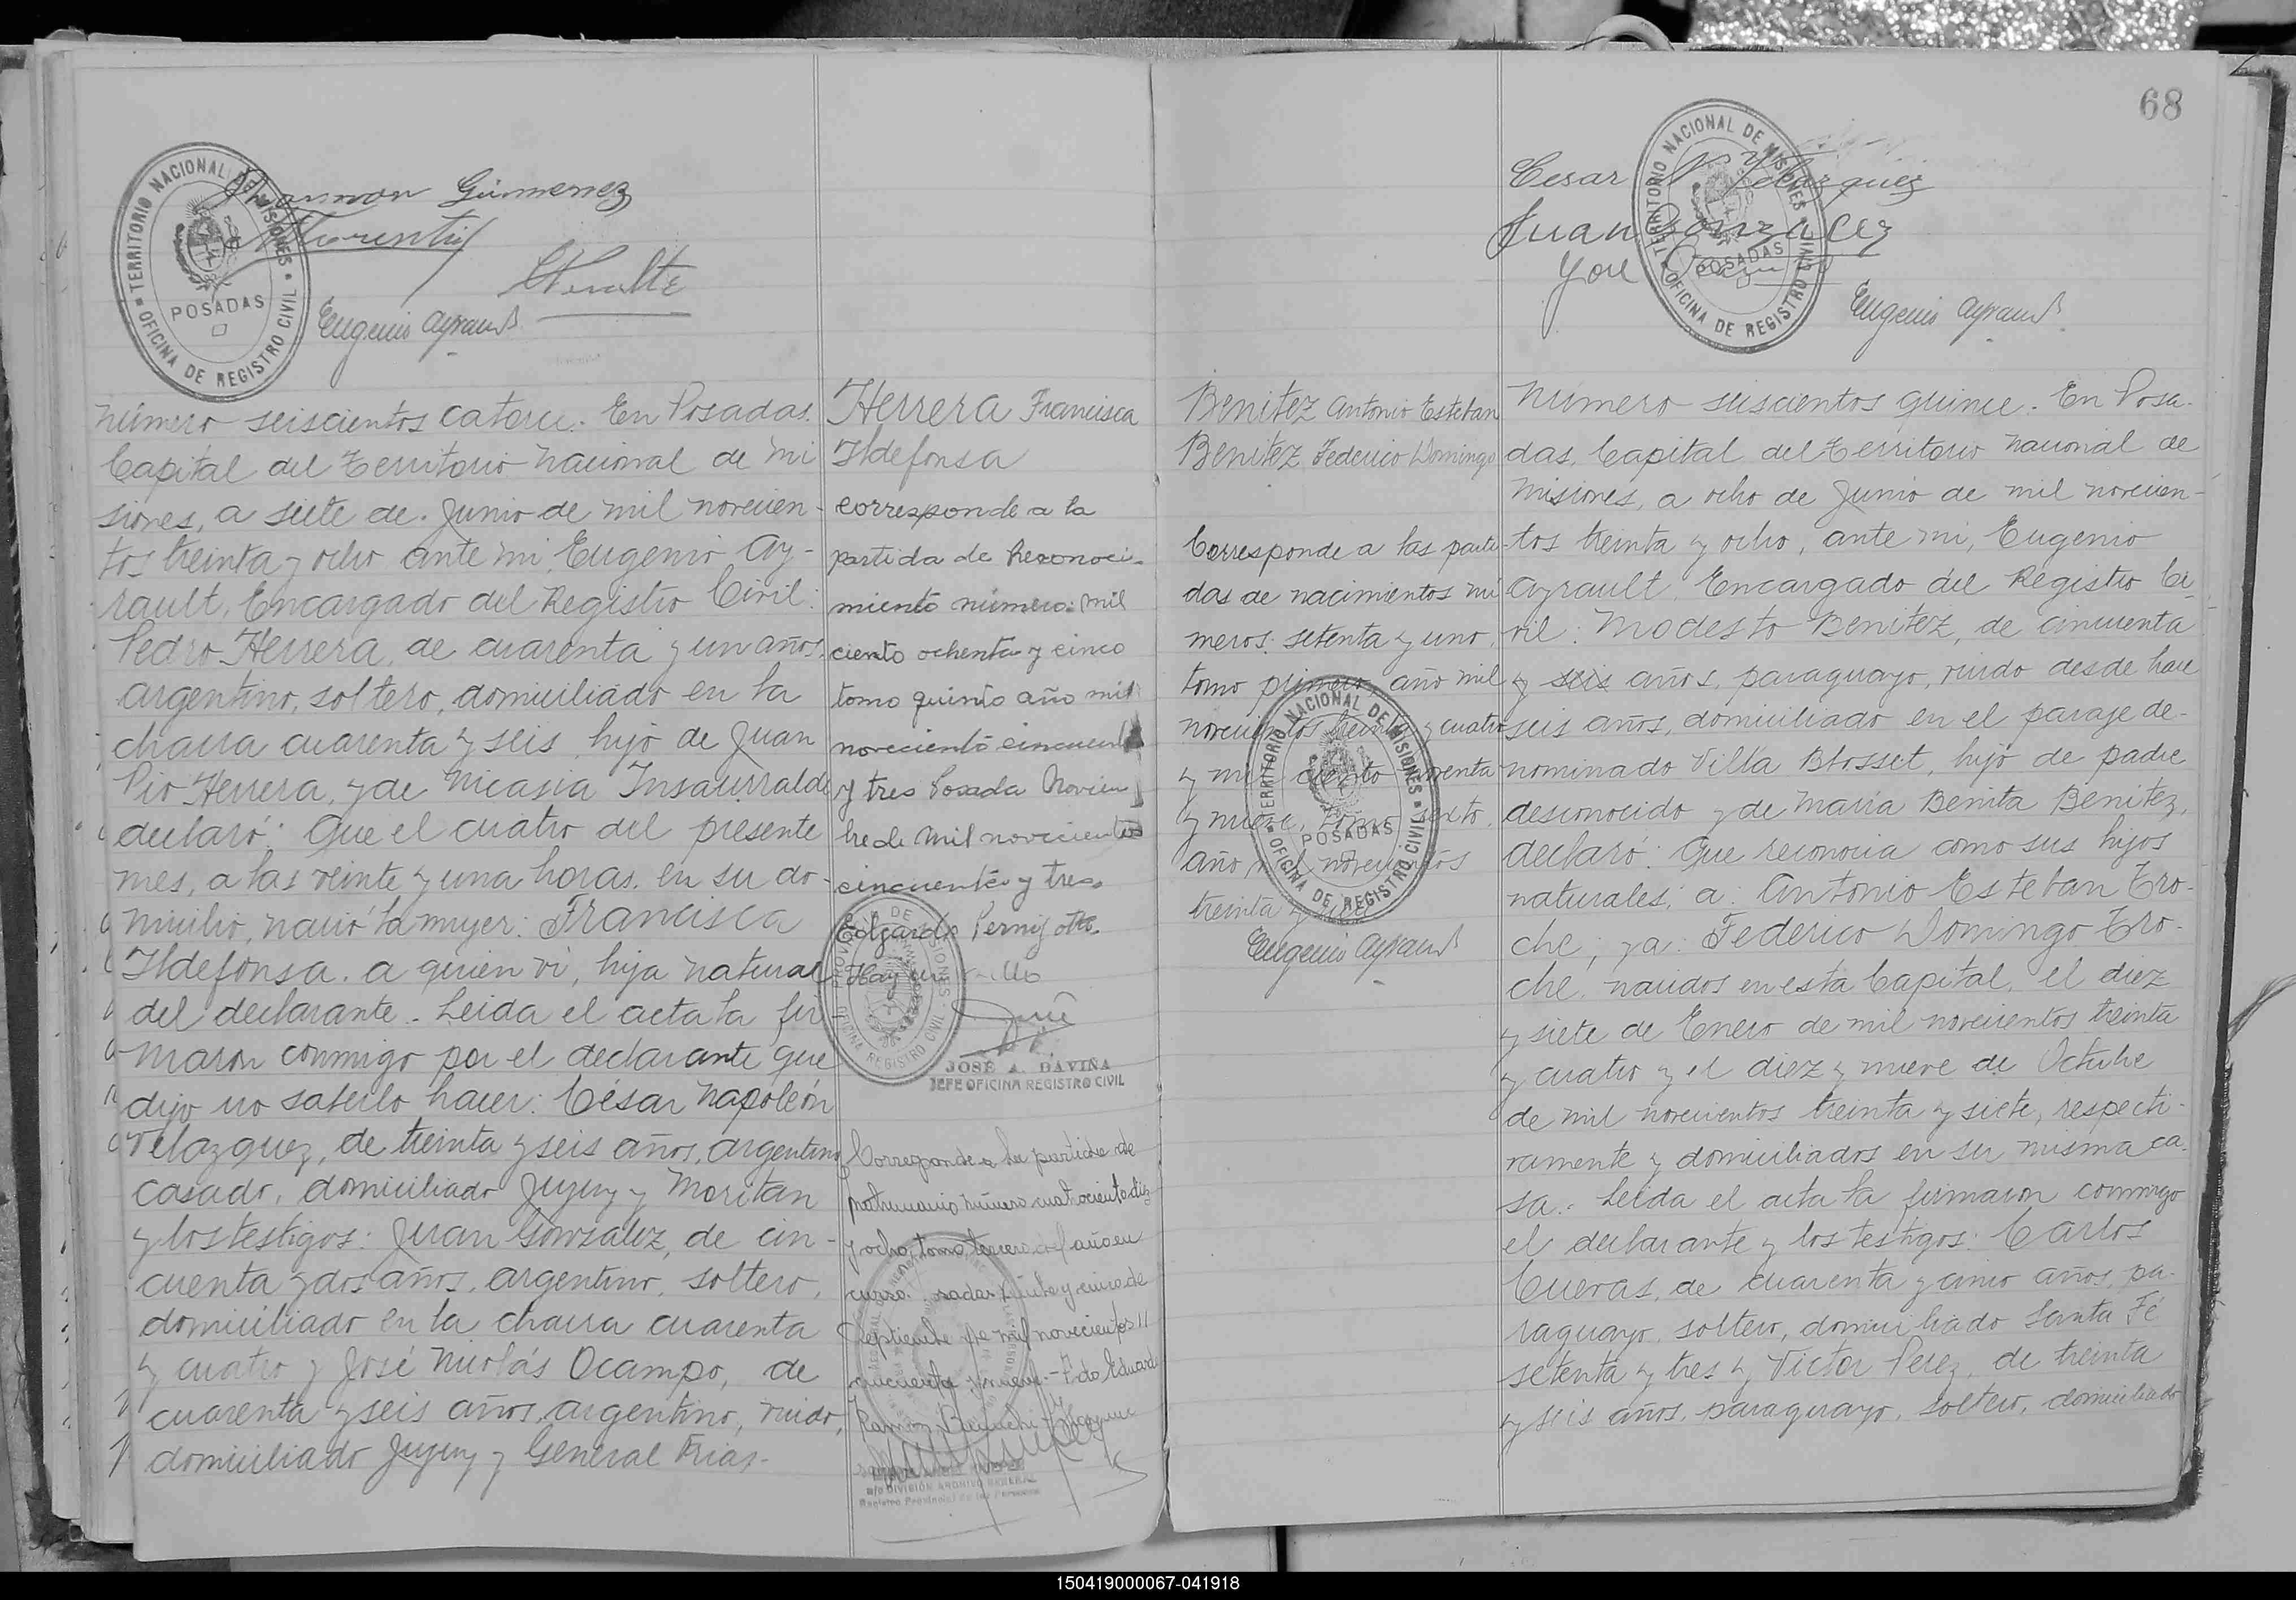 TERRITORIO NACIONAL DE MISIONES
OFICINA DE REGISTRO CIVIL
POSADAS
Gimenez
Eugenio Ayrault
Número seiscientos catorce. En Posadas.
Capital del Territorio Nacional de Mi
siones, a siete de Junio de mil novecien-
tos treinta y ocho ante mi, Eugenio Ay-
rault, Encargado del Registro Civil:
Pedro Herrera, de cuarenta y un años,
argentino, soltero, domiciliado en la
chacra cuarenta y seis, hijo de Juan
Pio Herrera, y de Nicasia Insaurralde
declaró: Que el cuatro del presente
mes, a las veinte y una horas, en su do-
micilio, nació la mujer: Francisca
Ildefonsa, a quien vi, hija natural
del declarante. Leida el acta la fir-
maron conmigo por el declarante que
dijo no saberlo hacer: César Napoleón
Velazquez, de treinta y seis años, argentino
casado, domiciliado Jujuy y Moritan
y los testigos: Juan González, de cin-
cuenta y dos años, argentino, soltero,
domiciliado en la chacra cuarenta
y cuatro y José Nicolás Ocampo, de
cuarenta y seis años, argentino, viudo,
domiciliado Jujuy y General Frias.
Herrera Francisca
Ildefonsa
corresponde a la
partida de Reconoci-
miento número: mil
ciento ochenta y cinco
tomo quinto año mil
noveciento cincuent
y tres Posada Noviem
bre de mil novecientos
cincuenta y tres.
Edgardo
Hay un sello
PROVINCIA DE MISIONES
OFICINA REGISTRO CIVIL
JOSÉ A. DAVIÑA
JEFE OFICINA REGISTRO CIVIL
Corresponde a la partida de
matrimonio número cuatrocientos diez
y ocho, tomo tercero del año en
curso. Posadas, veinte y cinco de
Septiembre de mil novecientos
cincuenta y nueve.- Fdo Eduardo
Ramón
DIVISIÓN ARCHIVO GENERAL
Registro Provincial de las Personas
68
Cesar N Velazquez
Juan Gonzalez
José
TERRITORIO NACIONAL DE MISIONES
OFICINA DE REGISTRO CIVIL
POSADAS
Eugenio Ayrault
Benitez Antonio Esteban
Benitez Federico Domingo
Corresponde a las parti-
das de nacimientos nú
meros: setenta y uno,
tomo primero, año mil
novecientos treinta y cuatro
y mil ciento
y nueve, tomo sexto,
año mil novecientos
treinta y siete
TERRITORIO NACIONAL DE MISIONES
OFICINA DE REGISTRO CIVIL
POSADAS
Eugenio Ayrault
Número seiscientos quince. En Posa-
das, Capital del Territorio Nacional de
Misiones, a ocho de Junio de mil novecien-
tos treinta y ocho, ante mi, Eugenio
Ayrault, Encargado del Registro Ci-
vil: Modesto Benitez, de cincuenta
y seis años, paraguayo, viudo desde hace
seis años, domiciliado en el paraje de-
nominado Villa Blosset, hijo de padre
desconocido y de María Benita Benitez,
declaró: Que reconocia como sus hijos
naturales; a: Antonio Esteban Tro-
che; y a: Federico Domingo Tro-
che, nacidos en esta Capital, el diez
y siete de Enero de mil novecientos treinta
y cuatro y el diez y nueve de Octubre
de mil novecientos treinta y siete, respecti-
vamente y domiciliados en su misma ca-
sa.- Leida el acta la firmaron conmigo
el declarante y los testigos: Carlos
Cuevas, de cuarenta y cinco años, pa-
raguayo, soltero, domiciliado Santa Fé
setenta y tres y Victor Perez, de treinta
y seis años, paraguayo, soltero, domiciliado
150419000067-041918